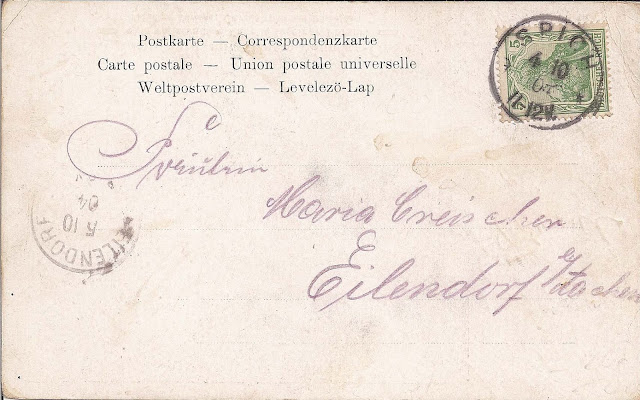 Postkarte — Correspondenzkarte
Carte postale — Union postale universelle
Weltpostverein — Levelezö-Lap
5
SPICH
4 10
11-12V.
Fräulein
Maria Creischer
Eilendorf b/
Aachen
EILENDORF
5 10
04